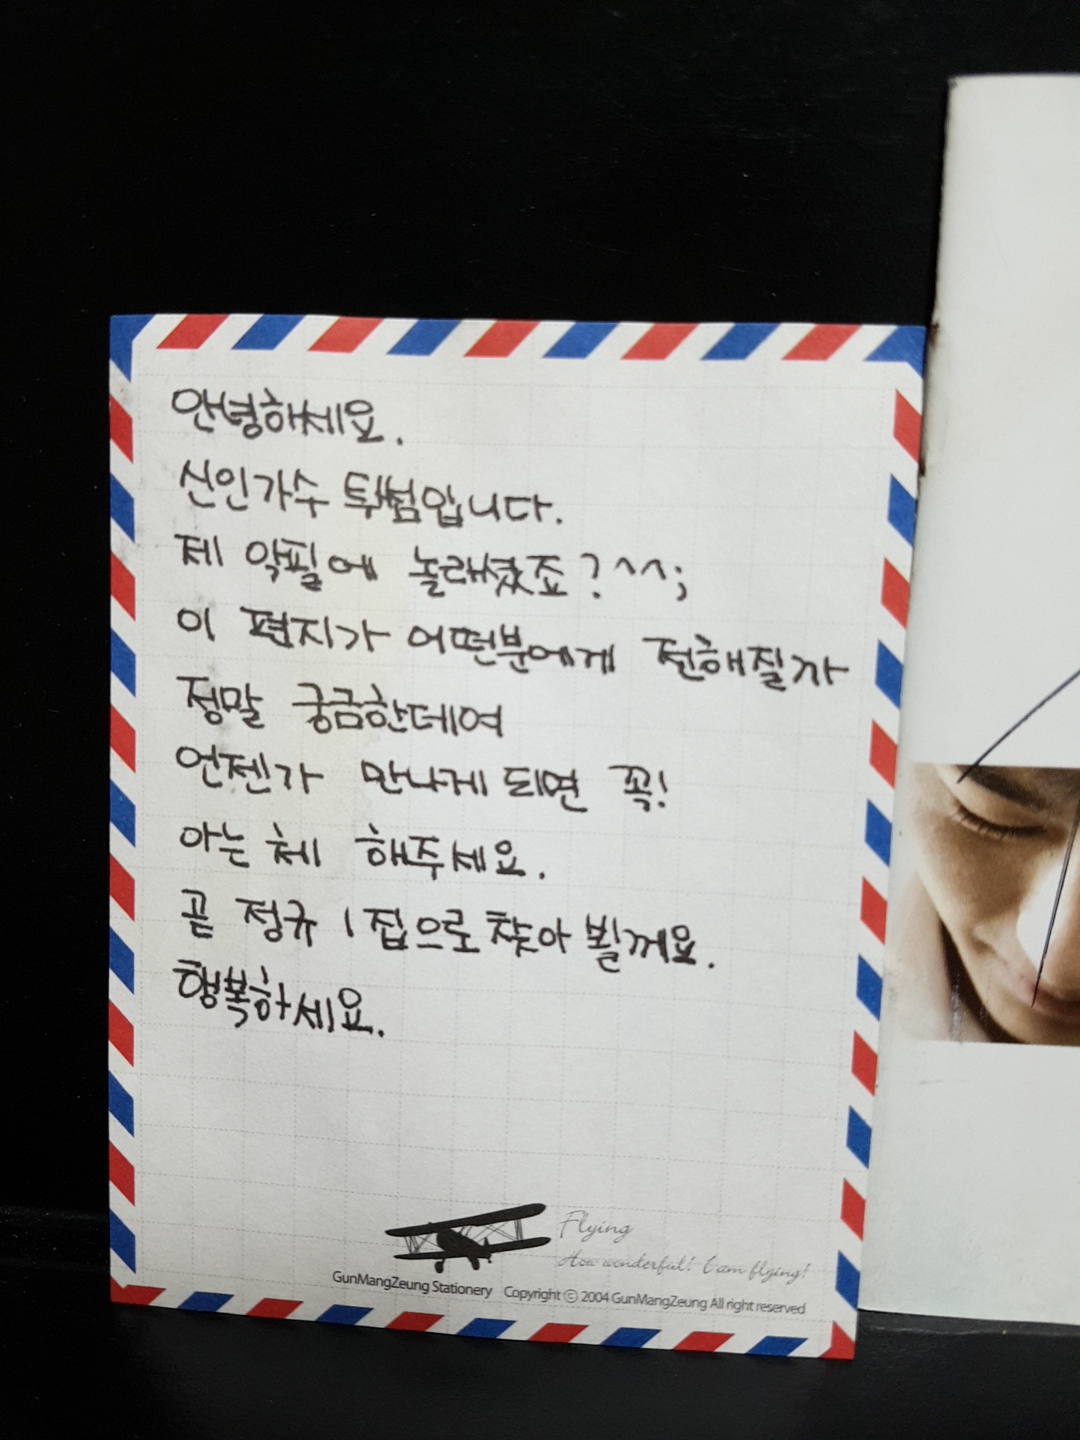 안녕하세요.
신인가수 튀범입니다.
제 악필에 놀래셨죠?^^;
이 편지가 어떤분에게 전해질까
정말 궁금한데여
언젠가 만나게 되면 꼭!
아는 체 해주세요.
곧 정규 1집으로 찾아 뵐께요.
행복하세요.
Flying
How wonderful! I am flying!
GunMangZeung Stationery Copyright ⓒ 2004 GunMangZeung All right reserved